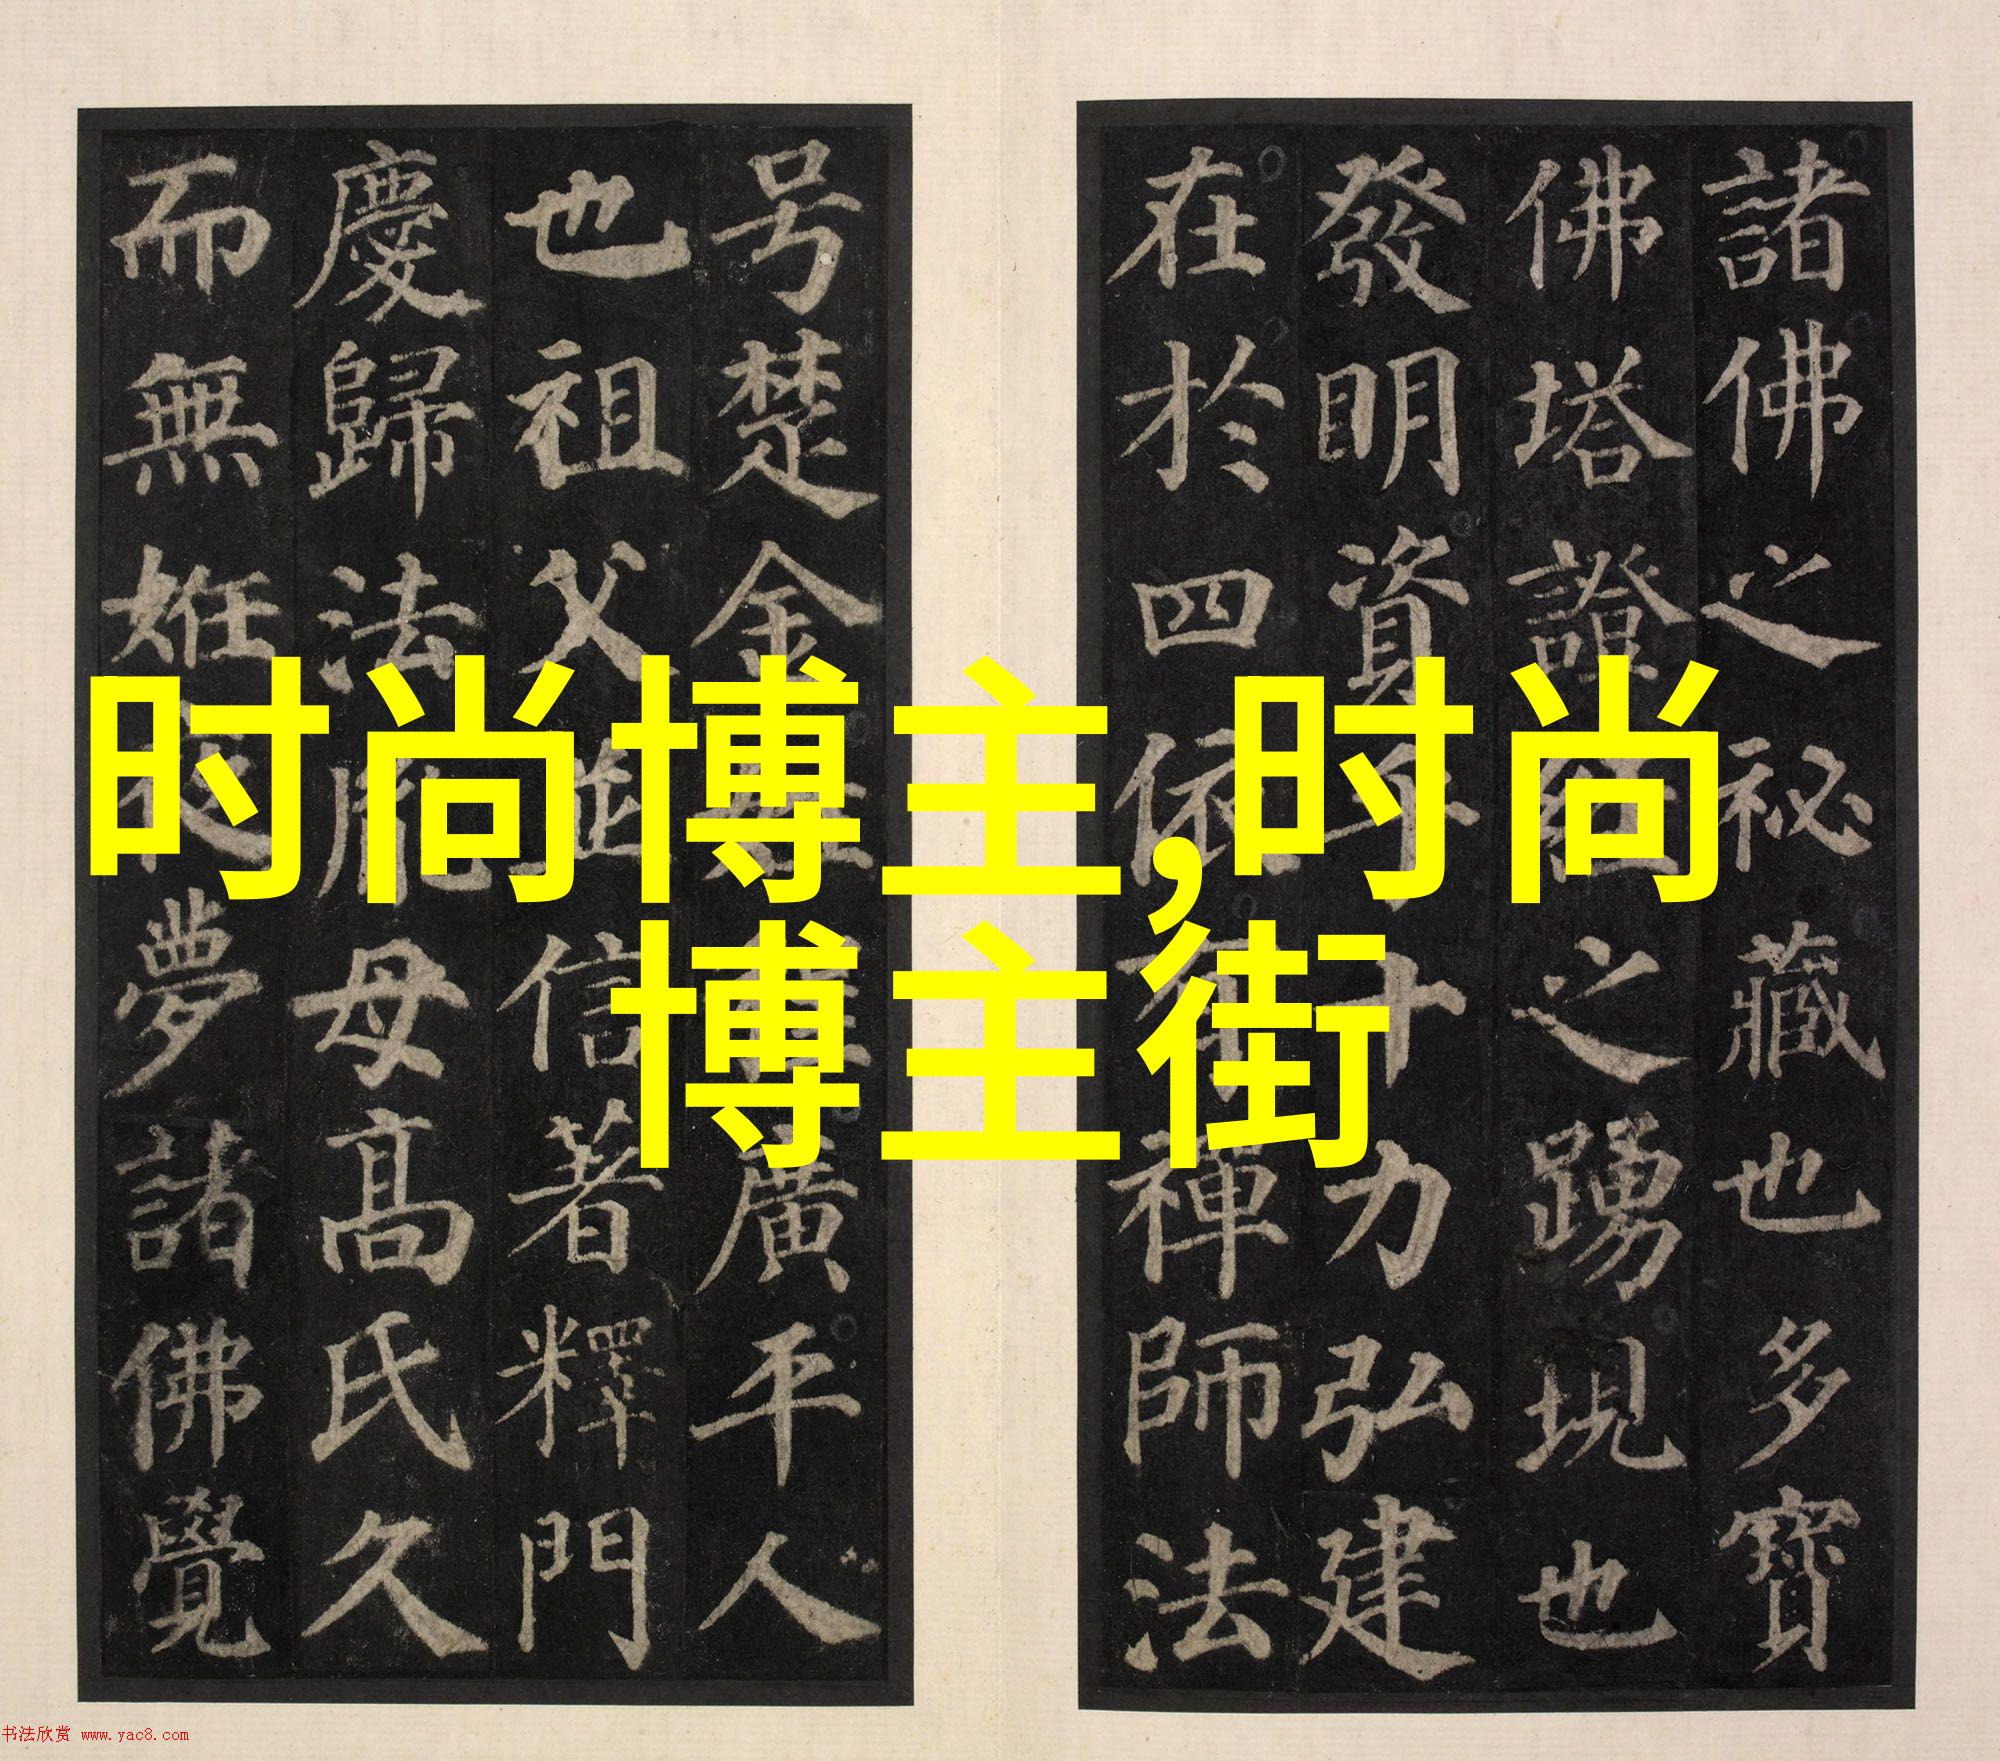 时尚博主,时尚
博主街
諸佛之祕藏也多寶
佛塔證經之踴現也
發明資乎十力弘建
在於四依有禪師法
号楚金姓程廣平人
也祖父並信著釋門
慶歸法胤母高氏久
而無姙夜夢諸佛覺
书法欣赏 www.yac8.com